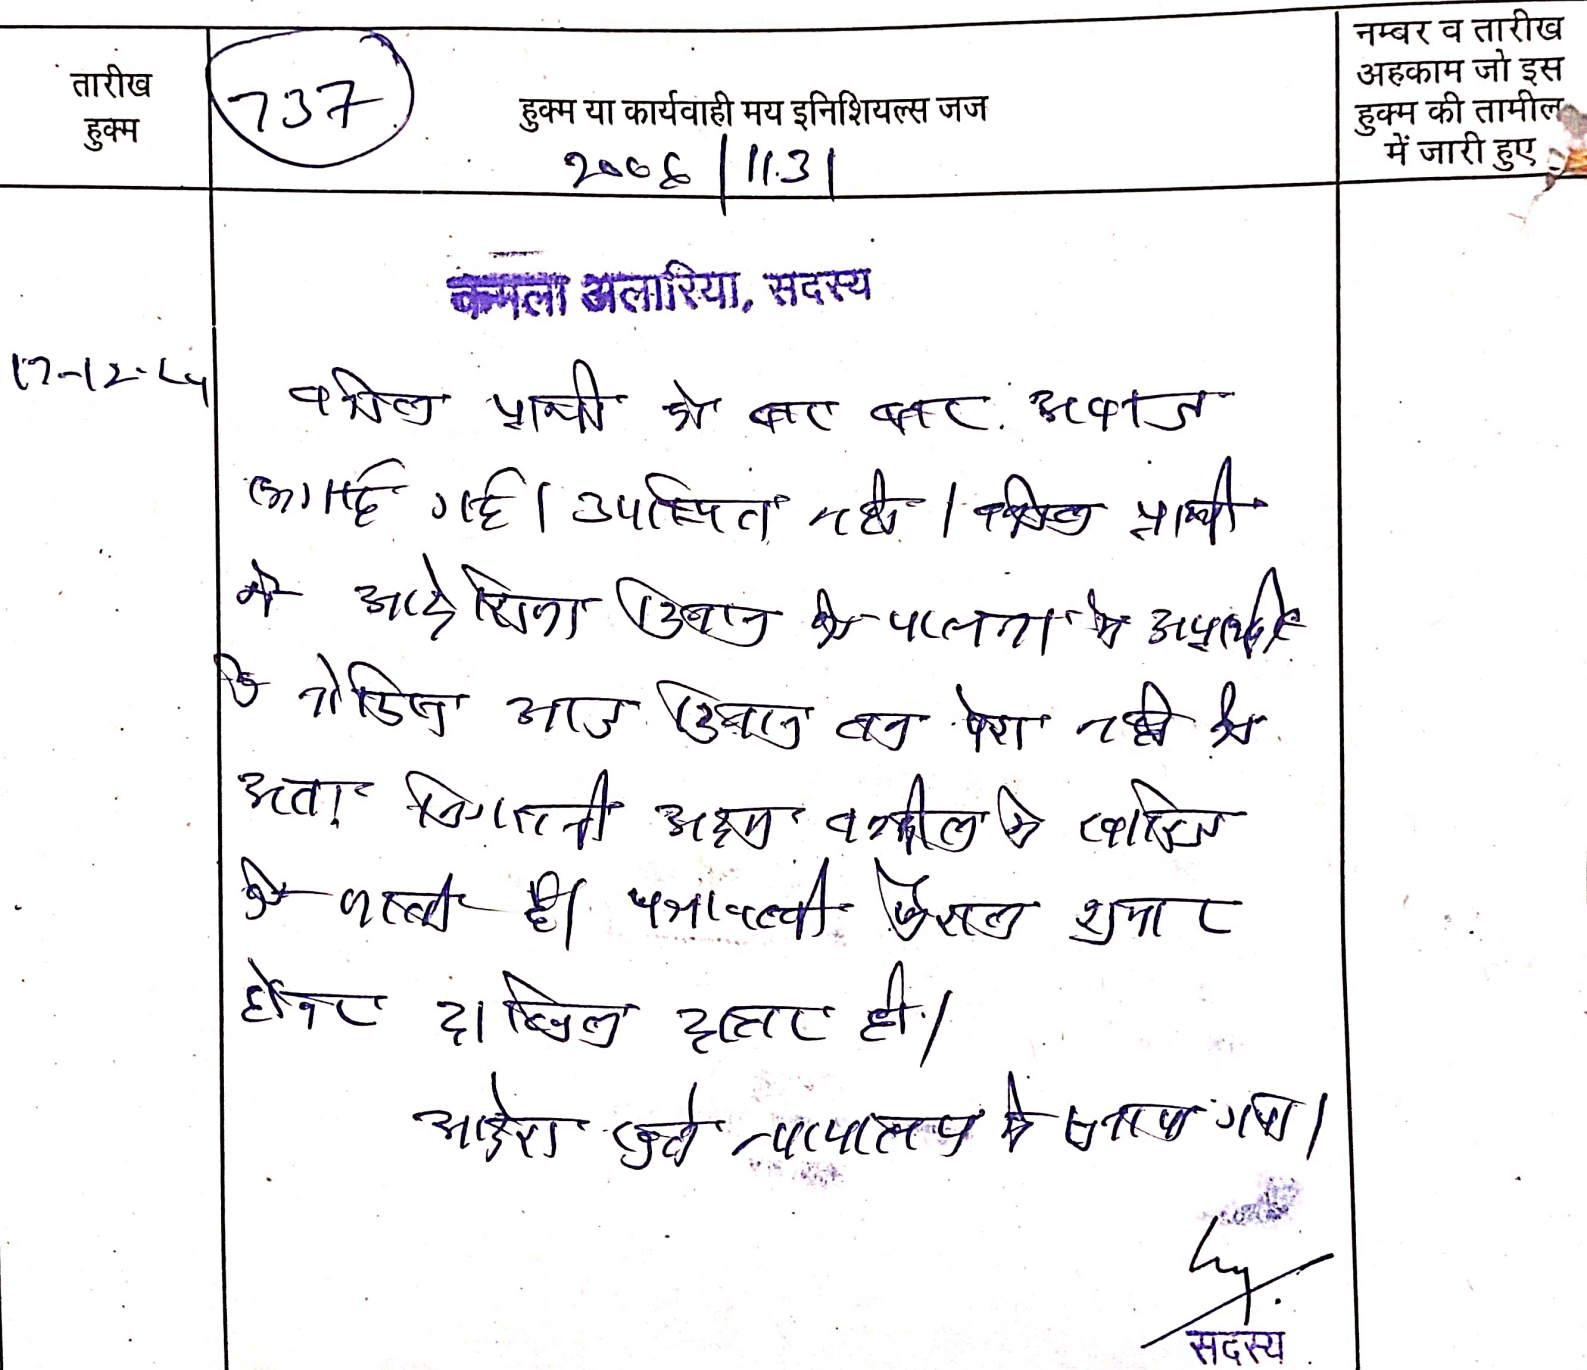 तारीख
हुक्म
737
हुक्म या कार्यवाही मय इनिशियल्स जज
2006/1131
नम्बर व तारीख
अहकाम जो इस
हुक्म की तामील
में जारी हुए
कमला अलारिया, सदस्य
17-12-24
वकील प्रार्थी को बार बार आवाज
लगाई गई। उपस्थित नहीं। वकील प्रार्थी
ने की पालना में अप्रार्थी
के नोटिस आज तक पेश नहीं की
अतः निगरानी अदम में खारिज
की जाती है। पत्रावली फैसल शुमार
होकर दाखिल दफ्तर हो।
आदेश खुले न्यायालय में सुनाया गया।
सदस्य